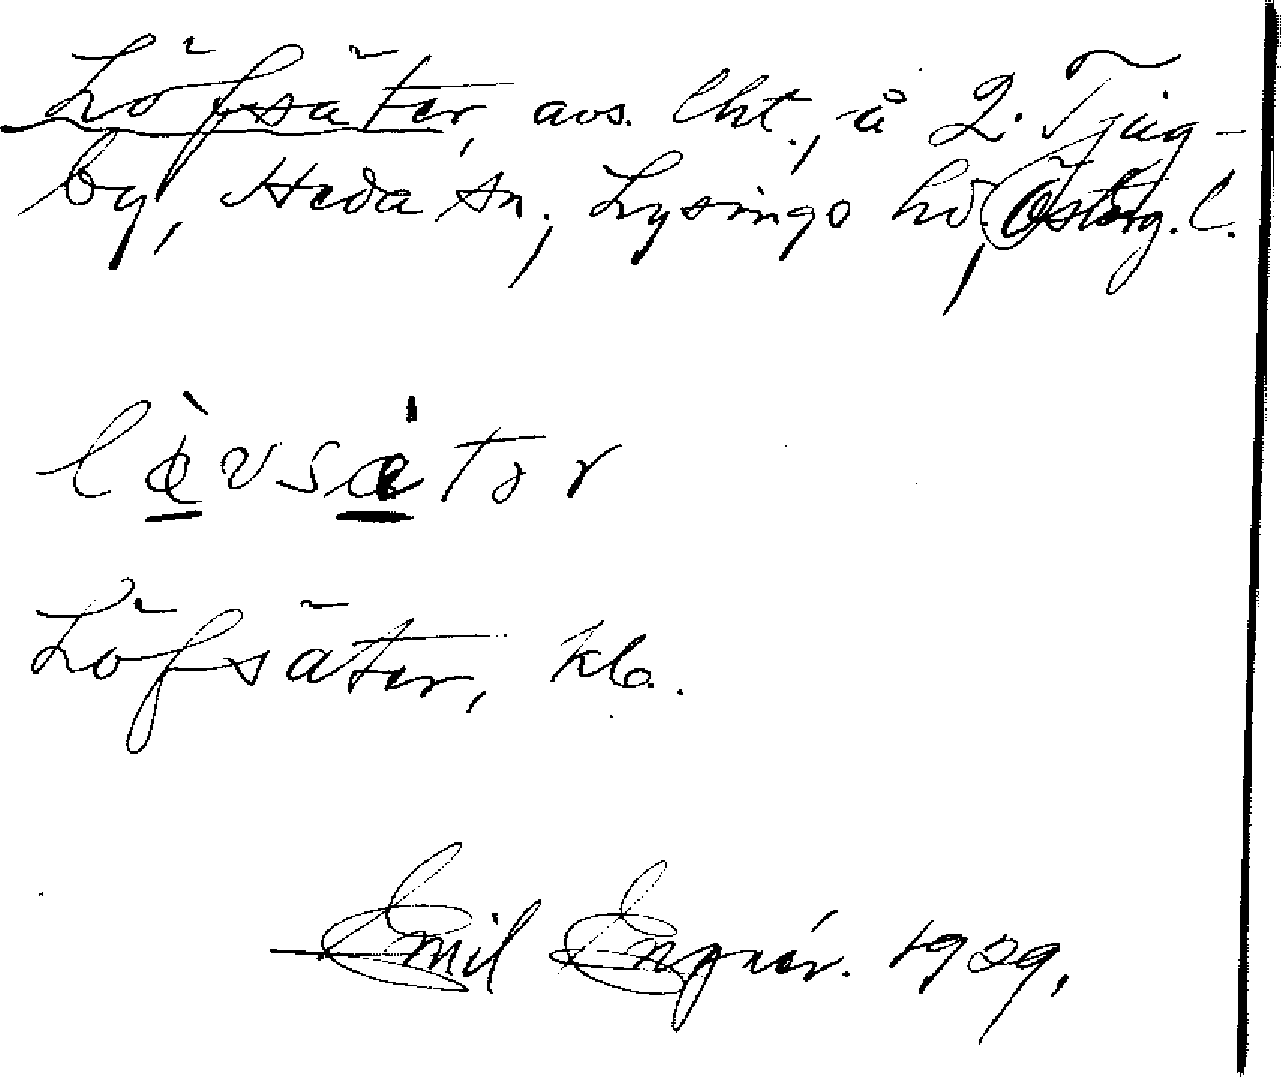 Löfsäter, avs. lht., å 2. Tjug-
by, Heda sn., Lysings hd, Österg. l.
lǿvsætər
Löfsäter, kb.
Emil Enqvér. 1929.